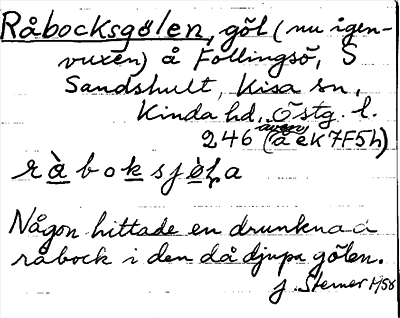 Råbocksgölen, göl (nu igen-
vuxen) å Föllingsö, S
Sandshult, Kisa sn,
Kinda hd, Östg. l.
även
246 (å ek 7F5h)
Någon hittade en drunknad
råbock i den då djupa gölen.
J. Sterner 1958